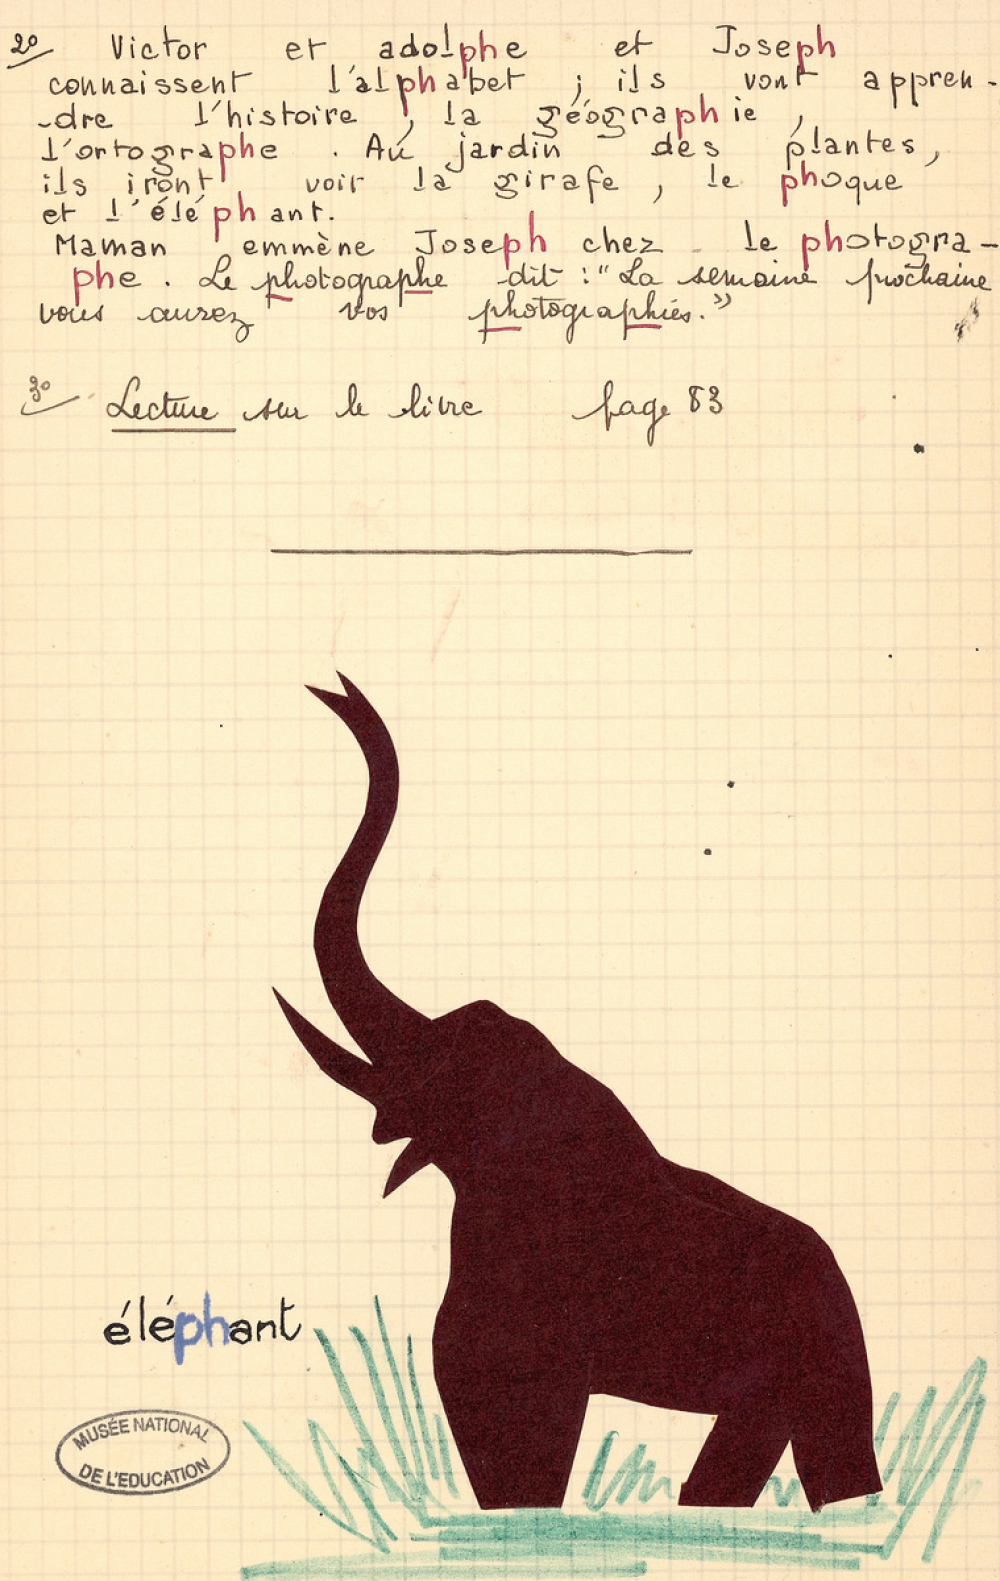 2º Victor et adolphe et Joseph
connaissent l'alphabet ; ils vont appren-
-dre l'histoire, la géographie,
l'ortographe. Au jardin des plantes,
ils iront voir la girafe, le phoque
et l'éléphant.
Maman emmène Joseph chez le photogra-
phe. Le photographe dit : "La semaine prochaine
vous aurez vos photographies."
3º Lecture sur le livre page 83
éléphant
MUSÉE NATIONAL
DE L'EDUCATION